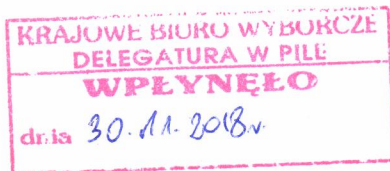 KRAJOWE BIURO WYBORCZE
DELEGATURA W PILE
WPŁYNĘŁO
dnia 30.11.2018r.